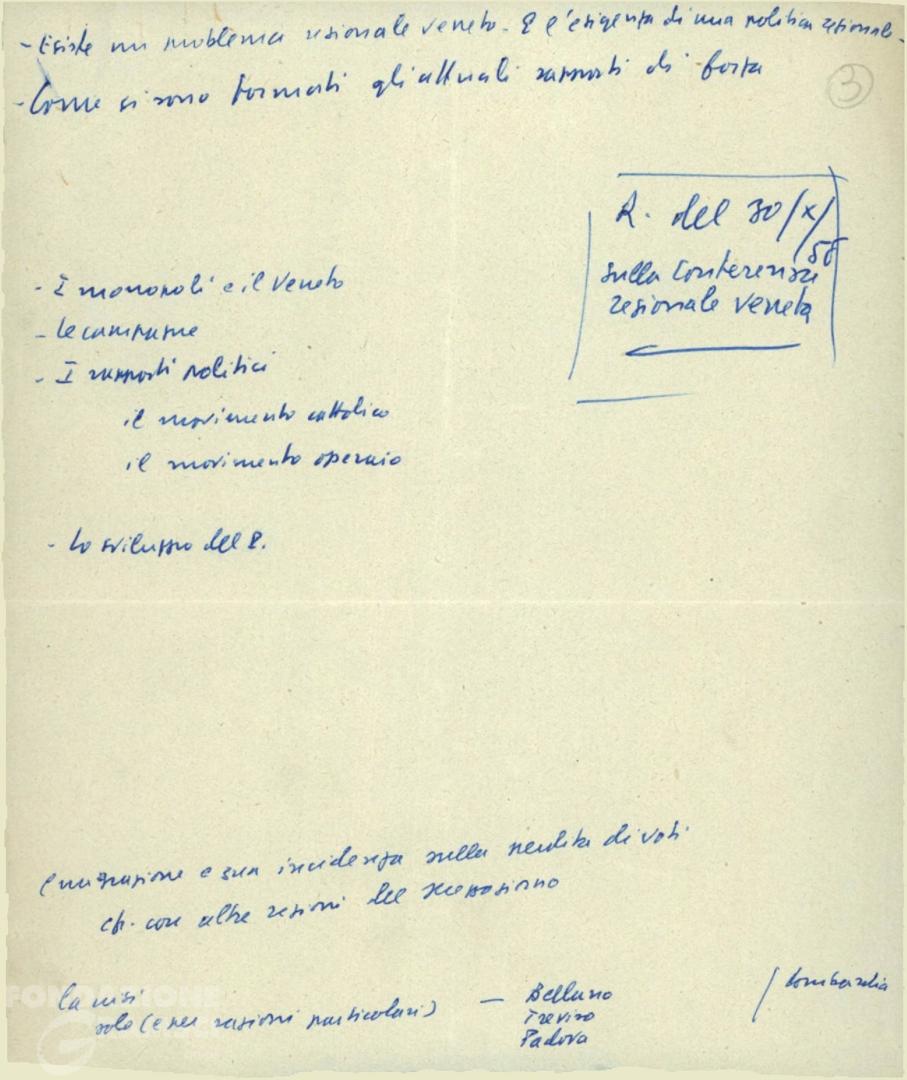 - Esiste un problema regionale veneto. E l'esigenza di una politica regionale.
- Come si sono formati gli attuali rapporti di forza
3
R. del 30/X/56
sulla Conferenza
regionale veneta
- I monopoli e il Veneto
- Le campagne
- I rapporti politici
il movimento cattolico
il movimento operaio
- Lo sviluppo del P.
Emigrazione e sua incidenza sulla perdita di voti
cfr. con altre regioni del Mezzogiorno
La crisi
solo (e per ragioni particolari) — Belluno
Treviso
Padova
/ Lombardia
FONDAZIONE